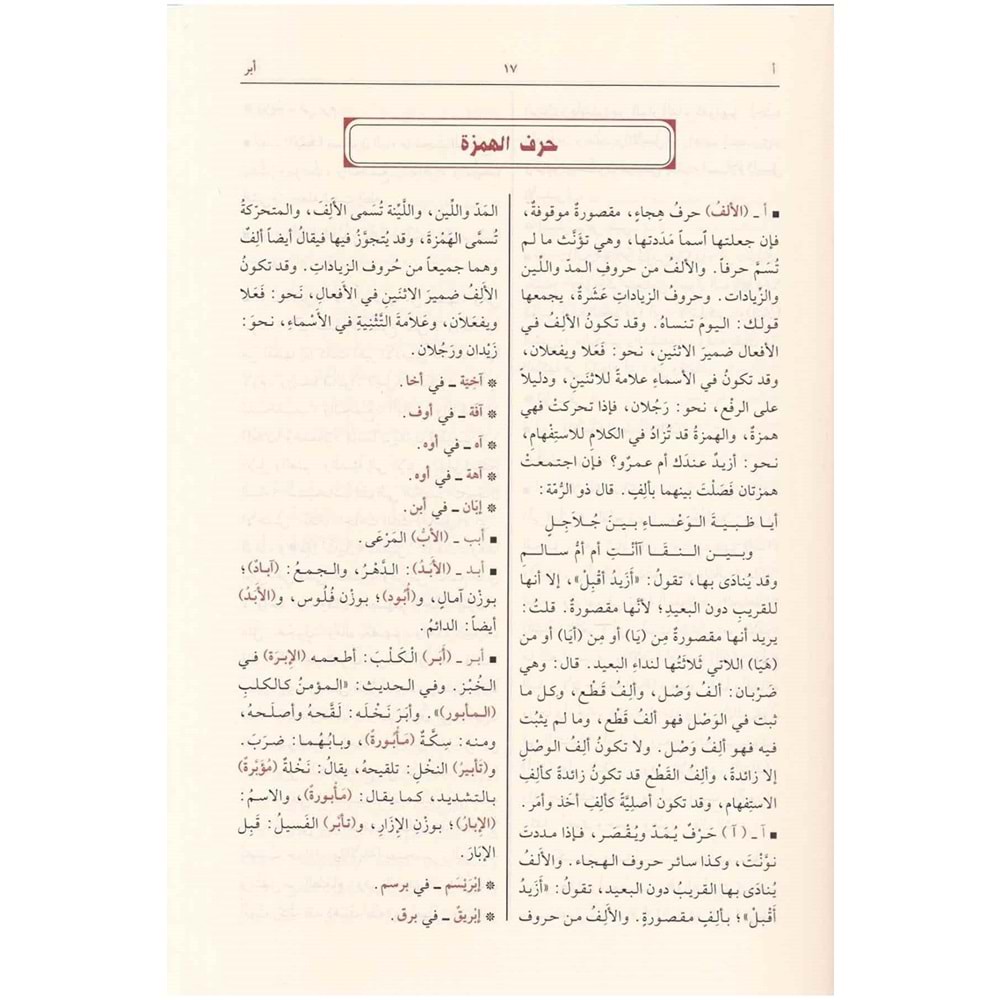 أ ١٧ أبر
حرف الهمزة
■ أ ـ (الألفُ) حرفُ هِجاءٍ، مقصورةٌ موقوفةٌ،
فإن جعلتها ٱسماً مَدَدتها، وهي تؤنَّث ما لم
تُسَمَّ حرفاً. والألفُ من حروفِ المدّ واللّين
والزّيادات. وحروفُ الزياداتِ عَشَرةٌ، يجمعها
قولك: اليومَ تنساهُ. وقد تكونُ الألِفُ في
الأفعال ضميرَ الاثنَينِ، نحو: فَعَلا ويفعلان،
وقد تكون في الأسماءِ علامةً للاثنَينِ، ودليلاً
على الرفْع، نحو: رَجُلان، فإذا تحركتْ فهي
همزةٌ، والهمزةُ قد تُزادُ في الكلامِ للاستِفْهامِ،
نحو: أزيدٌ عندَك أم عمرٌو؟ فإن اجتمعتْ
همزتان فَصَلْتَ بينهما بألِفٍ. قال ذو الرُمّة:
أيا ظبيةَ الوَعْساءِ بينَ جُلاجِلٍ
وبين النقا آأنْتِ أم أمُّ سالمِ
وقد يُنادَى بها، تقولُ: «أَزَيدُ أقبِلْ»، إلا أنها
للقريبِ دون البعيدِ؛ لأنَّها مقصورةٌ. قلتُ:
يريد أنها مقصورةٌ مِن (يَا) أو مِن (أيَا) أو من
(هَيَا) اللاتي ثَلاثَتُها لنداءِ البعيد. قال: وهي
ضَرْبان: ألفُ وَصْل، وألِفُ قَطْع، وكل ما
ثبت في الوَصْل فهو ألفُ قَطْع، وما لم يثبُت
فيه فهو ألِفُ وَصْل. ولا تكونُ ألِفُ الوصْلِ
إلا زائدةً، وألِفُ القَطْعِ قد تكونُ زائدةً كألِفِ
الاستِفهامِ، وقد تكون أصليَّةً كألِفِ أخَذ وأمَر.
■ آ ـ (آ) حَرْفٌ يُمَدّ ويُقْصَر، فإذا مددتَ
نوَّنْتَ، وكذا سائر حروفِ الهجاء. والألَفُ
يُنادَى بها القريبُ دون البعيد، تقولُ: «أزَيدُ
أقبلْ»؛ بألِفٍ مقصورةٍ. والألِفُ من حروف
المَدّ واللينِ، واللَّينة تُسَمى الأَلِفَ، والمتحرّكةُ
تُسمَّى الهَمْزةَ، وقد يُتجوَّزُ فيها فيقالُ أيضاً ألِفٌ
وهما جميعاً من حُروف الزياداتِ. وقد تكونُ
الألِفُ ضميرَ الاثنَينِ في الأَفعالِ، نَحو: فَعَلا
ويفعَلان، وعَلامَةَ التَّثْنِيةِ في الأَسْماءِ، نحوَ:
زَيْدان ورَجُلان.
* آخيّة ـ في أخا.
* آفة ـ في أوف.
* آه ـ في أوه.
* آهة ـ في أوه.
* إبّان ـ في أبن.
■ أبب ـ (الأبُّ) المَرْعَى.
■ أبد ـ (الأبَدُ): الدَّهْرُ، والجمعُ: (آبادٌ)؛
بوزْنِ آمالٍ، و(أُبُود)؛ بوزْن فُلُوس، و(الأبَدُ)
أيضاً: الدائمُ.
■ أبر ـ (أَبَر) الْكَلْبَ: أطعمه (الإبرَةَ) في
الخُبْز. وفي الحديث: «المؤمنُ كالكلبِ
(المأبورِ)». وأبَرَ نَخْلَه: لَقَّحهُ وأصلَحهُ،
ومنه: سِكَّةٌ (مَأْبُورةٌ)، وبابُهُما: ضَرَبَ.
و(تَأبيرُ) النخْلِ: تلقيحُه، يقالُ: نَخْلةٌ (مُؤَبَّرةٌ)
بالتشديد، كما يقال: (مَأْبورةٌ)، والاسمُ:
(الإبارُ)؛ بوزْنِ الإزَارِ، و(تأبَّر) الفَسيلُ: قَبِل
الإبَارَ.
* إبْرَيْسَم ـ في برسم.
* إبْريقٌ ـ في برق.